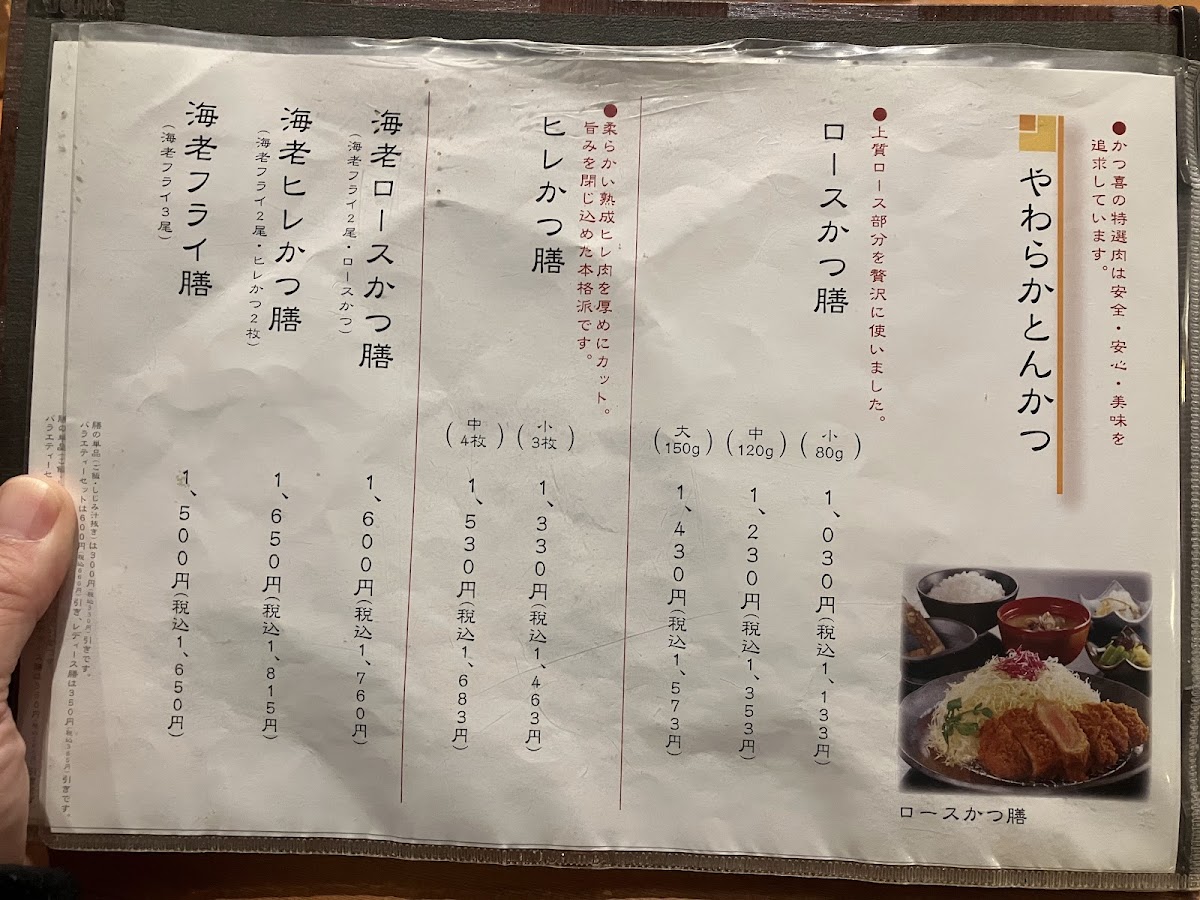 ●かつ喜の特選肉は安全・安心・美味を
追求しています。
やわらかとんかつ
ロースかつ膳
●上質ロース部分を贅沢に使いました。
ロースかつ膳
(小80g) 1、030円(税込1、133円)
(中120g) 1、230円(税込1、353円)
(大150g) 1、430円(税込1、573円)
●柔らかい熟成ヒレ肉を厚めにカット。
旨みを閉じ込めた本格派です。
ヒレかつ膳
(小3枚) 1、330円(税込1、463円)
(中4枚) 1、530円(税込1、683円)
海老ロースかつ膳
(海老フライ2尾・ロースかつ)
1、600円(税込1、760円)
海老ヒレかつ膳
(海老フライ2尾・ヒレかつ2枚)
1、650円(税込1、815円)
海老フライ膳
(海老フライ3尾)
1、500円(税込1、650円)
膳の単品(ご飯・しじみ汁抜き)は300円(税込330円)引きです。
バラエティーセットは600円(税込660円)引き、レディース膳は350円(税込385円)引きです。